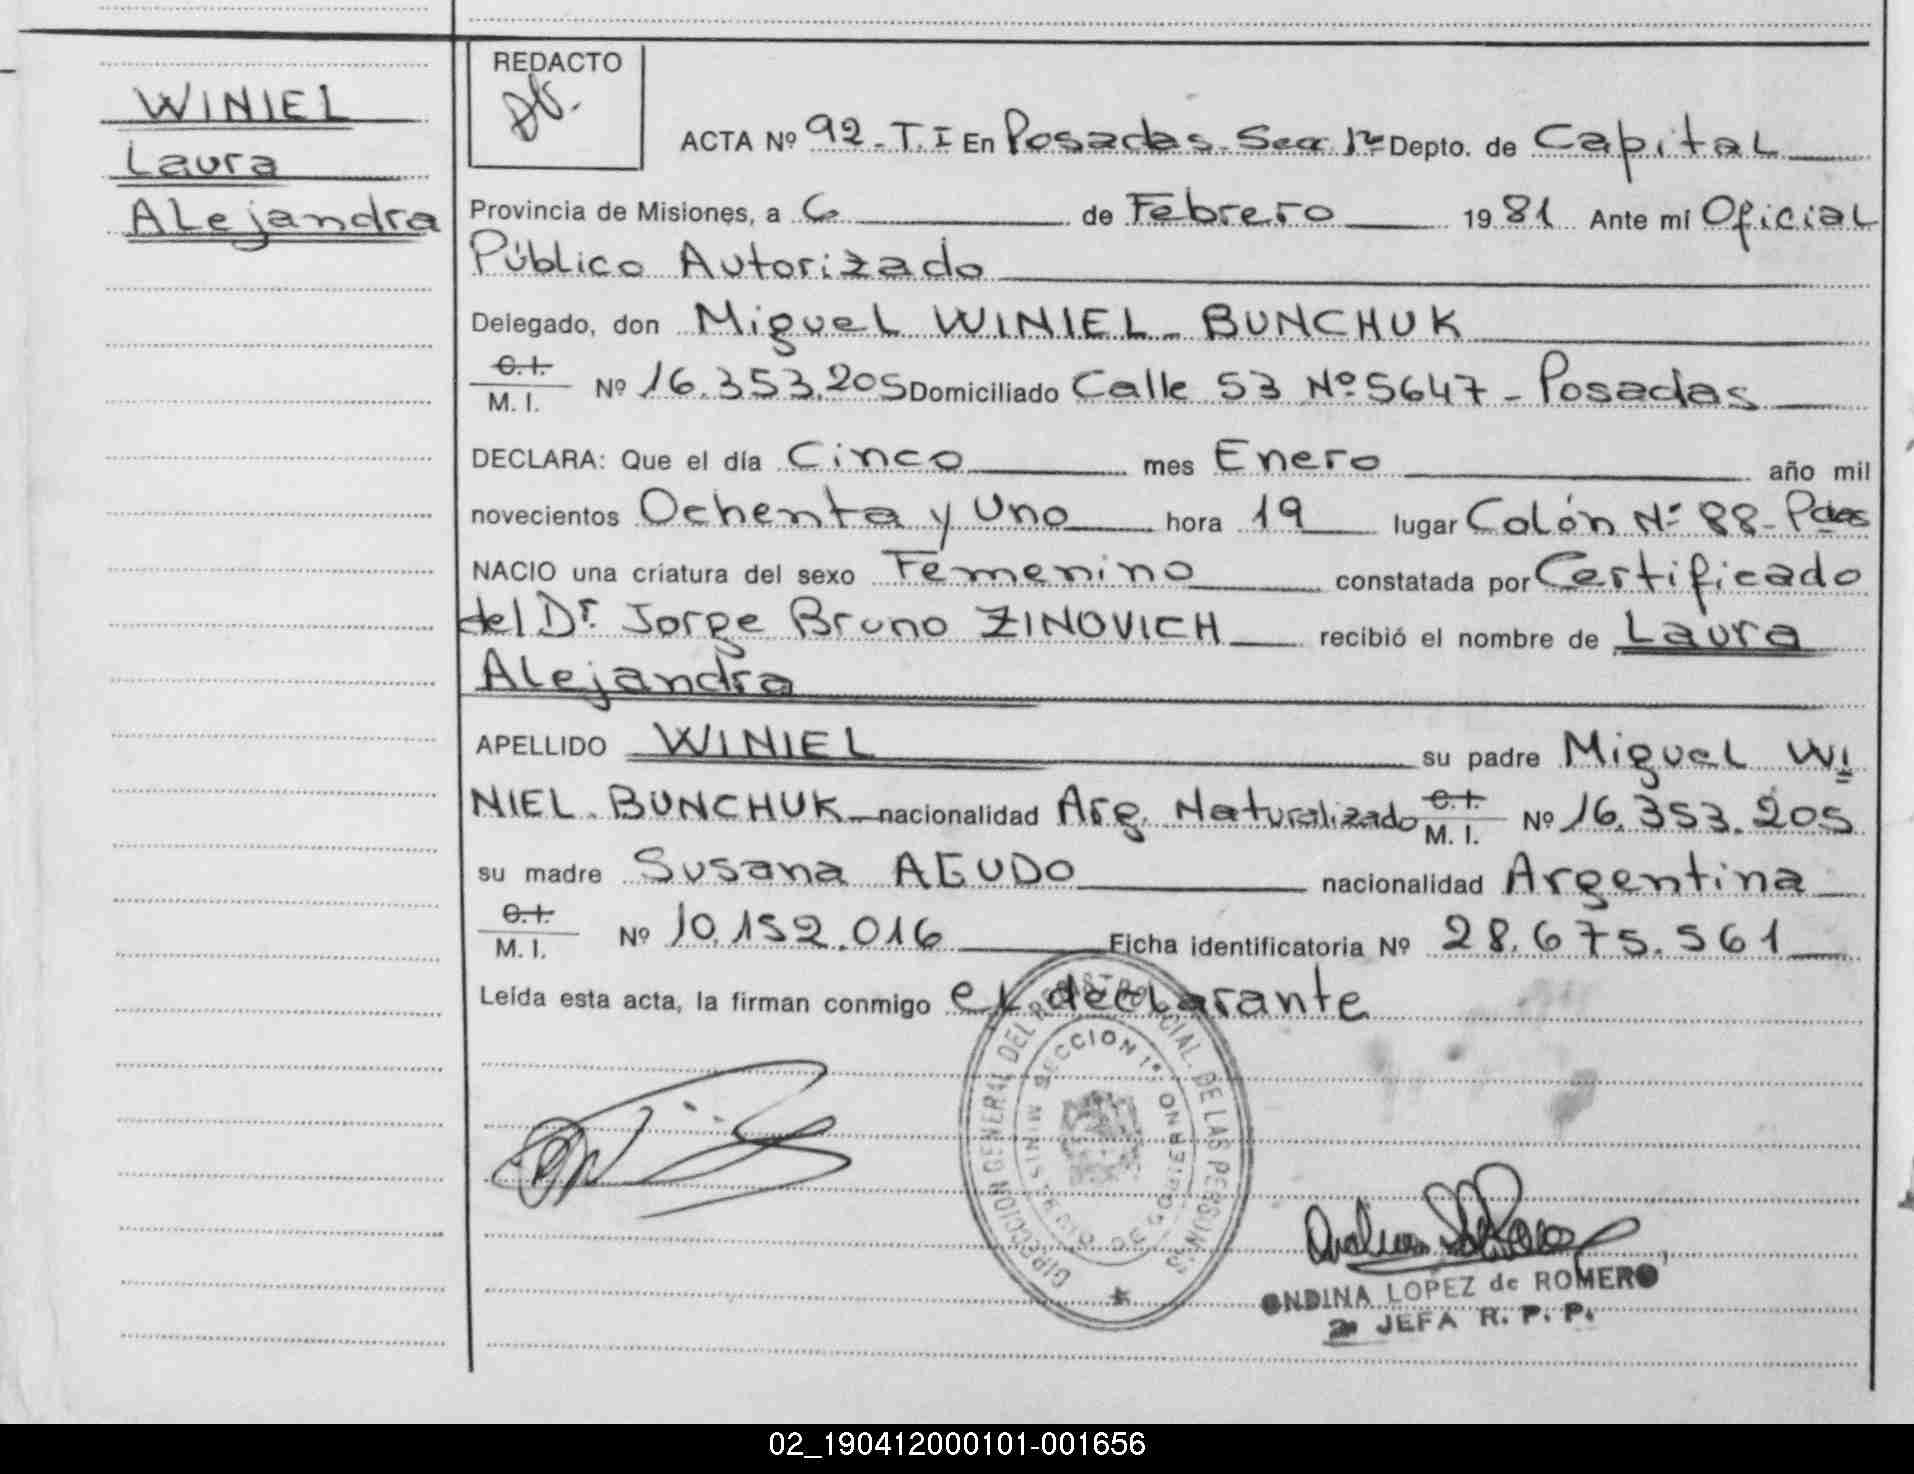 WINIEL
Laura
Alejandra
REDACTO
ACTA Nº 92-T.I En Posadas-Secc.1ra Depto. de Capital
Provincia de Misiones, a 6 de Febrero 1981 Ante mí Oficial
Público Autorizado
Delegado, don Miguel WINIEL-BUNCHUK
C.I.
M. I. Nº 16.353.205 Domiciliado Calle 53 Nº 5647 - Posadas
DECLARA: Que el día Cinco mes Enero año mil
novecientos Ochenta y Uno hora 19 lugar Colón Nº 88-Pdas
NACIO una criatura del sexo Femenino constatada por Certificado
del Dr. Jorge Bruno ZINOVICH recibió el nombre de Laura
Alejandra
APELLIDO WINIEL su padre Miguel WI
NIEL-BUNCHUK nacionalidad Arg. Naturalizado C.I. M. I. Nº 16.353.205
su madre Susana AGUDO nacionalidad Argentina
C.I.
M. I. Nº 10.152.016 Ficha identificatoria Nº 28.675.561
Leída esta acta, la firman conmigo el declarante
DIRECCION GENERAL DEL REGISTRO PROVINCIAL DE LAS PERSONAS
SECCION 1ª
MINISTERIO DE GOBIERNO
ONDINA LOPEZ de ROMERO
2a JEFA R. P. P.
02_190412000101-001656